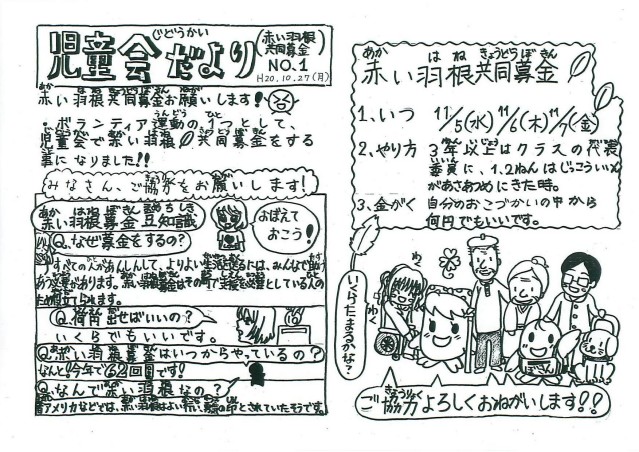 児童会だより
じどうかい
(赤い羽根
共同募金)
NO.1
H20.10.27(月)
赤い羽根共同募金お願いします!
・ボランティア運動の1つとして、
児童会で赤い羽根共同募金をする
事になりました!!
みなさん、ご協力をお願いします!
赤い羽根募金豆知識
あか はね ぼきん まめちしき
おぼえて
おこう!
Q.なぜ募金をするの?
すべての人があんしんして、よりよい生活
Q.何円出せばいいの?
いくらでもいいです。
Q.赤い羽根募金はいつからやっているの?
なんと!今年で62回目です!
Q.なんで赤い羽根なの?
アメリカなどでは、赤い羽根はよい行い
とされていたそうです。
赤い羽根共同募金
あか はね きょうどうぼきん
1、いつ 11/5(水) 11/6(木) 11/7(金)
2、やり方 3年以上はクラスの代表
委員に、1、2ねんはじっこういいんが
あさあつめにきた時。
3、金がく 自分のおこづかいの中から
何円でもいいです。
いくらたまるかな?
わくわく
ご協力よろしくおねがいします!!
きょうりょく